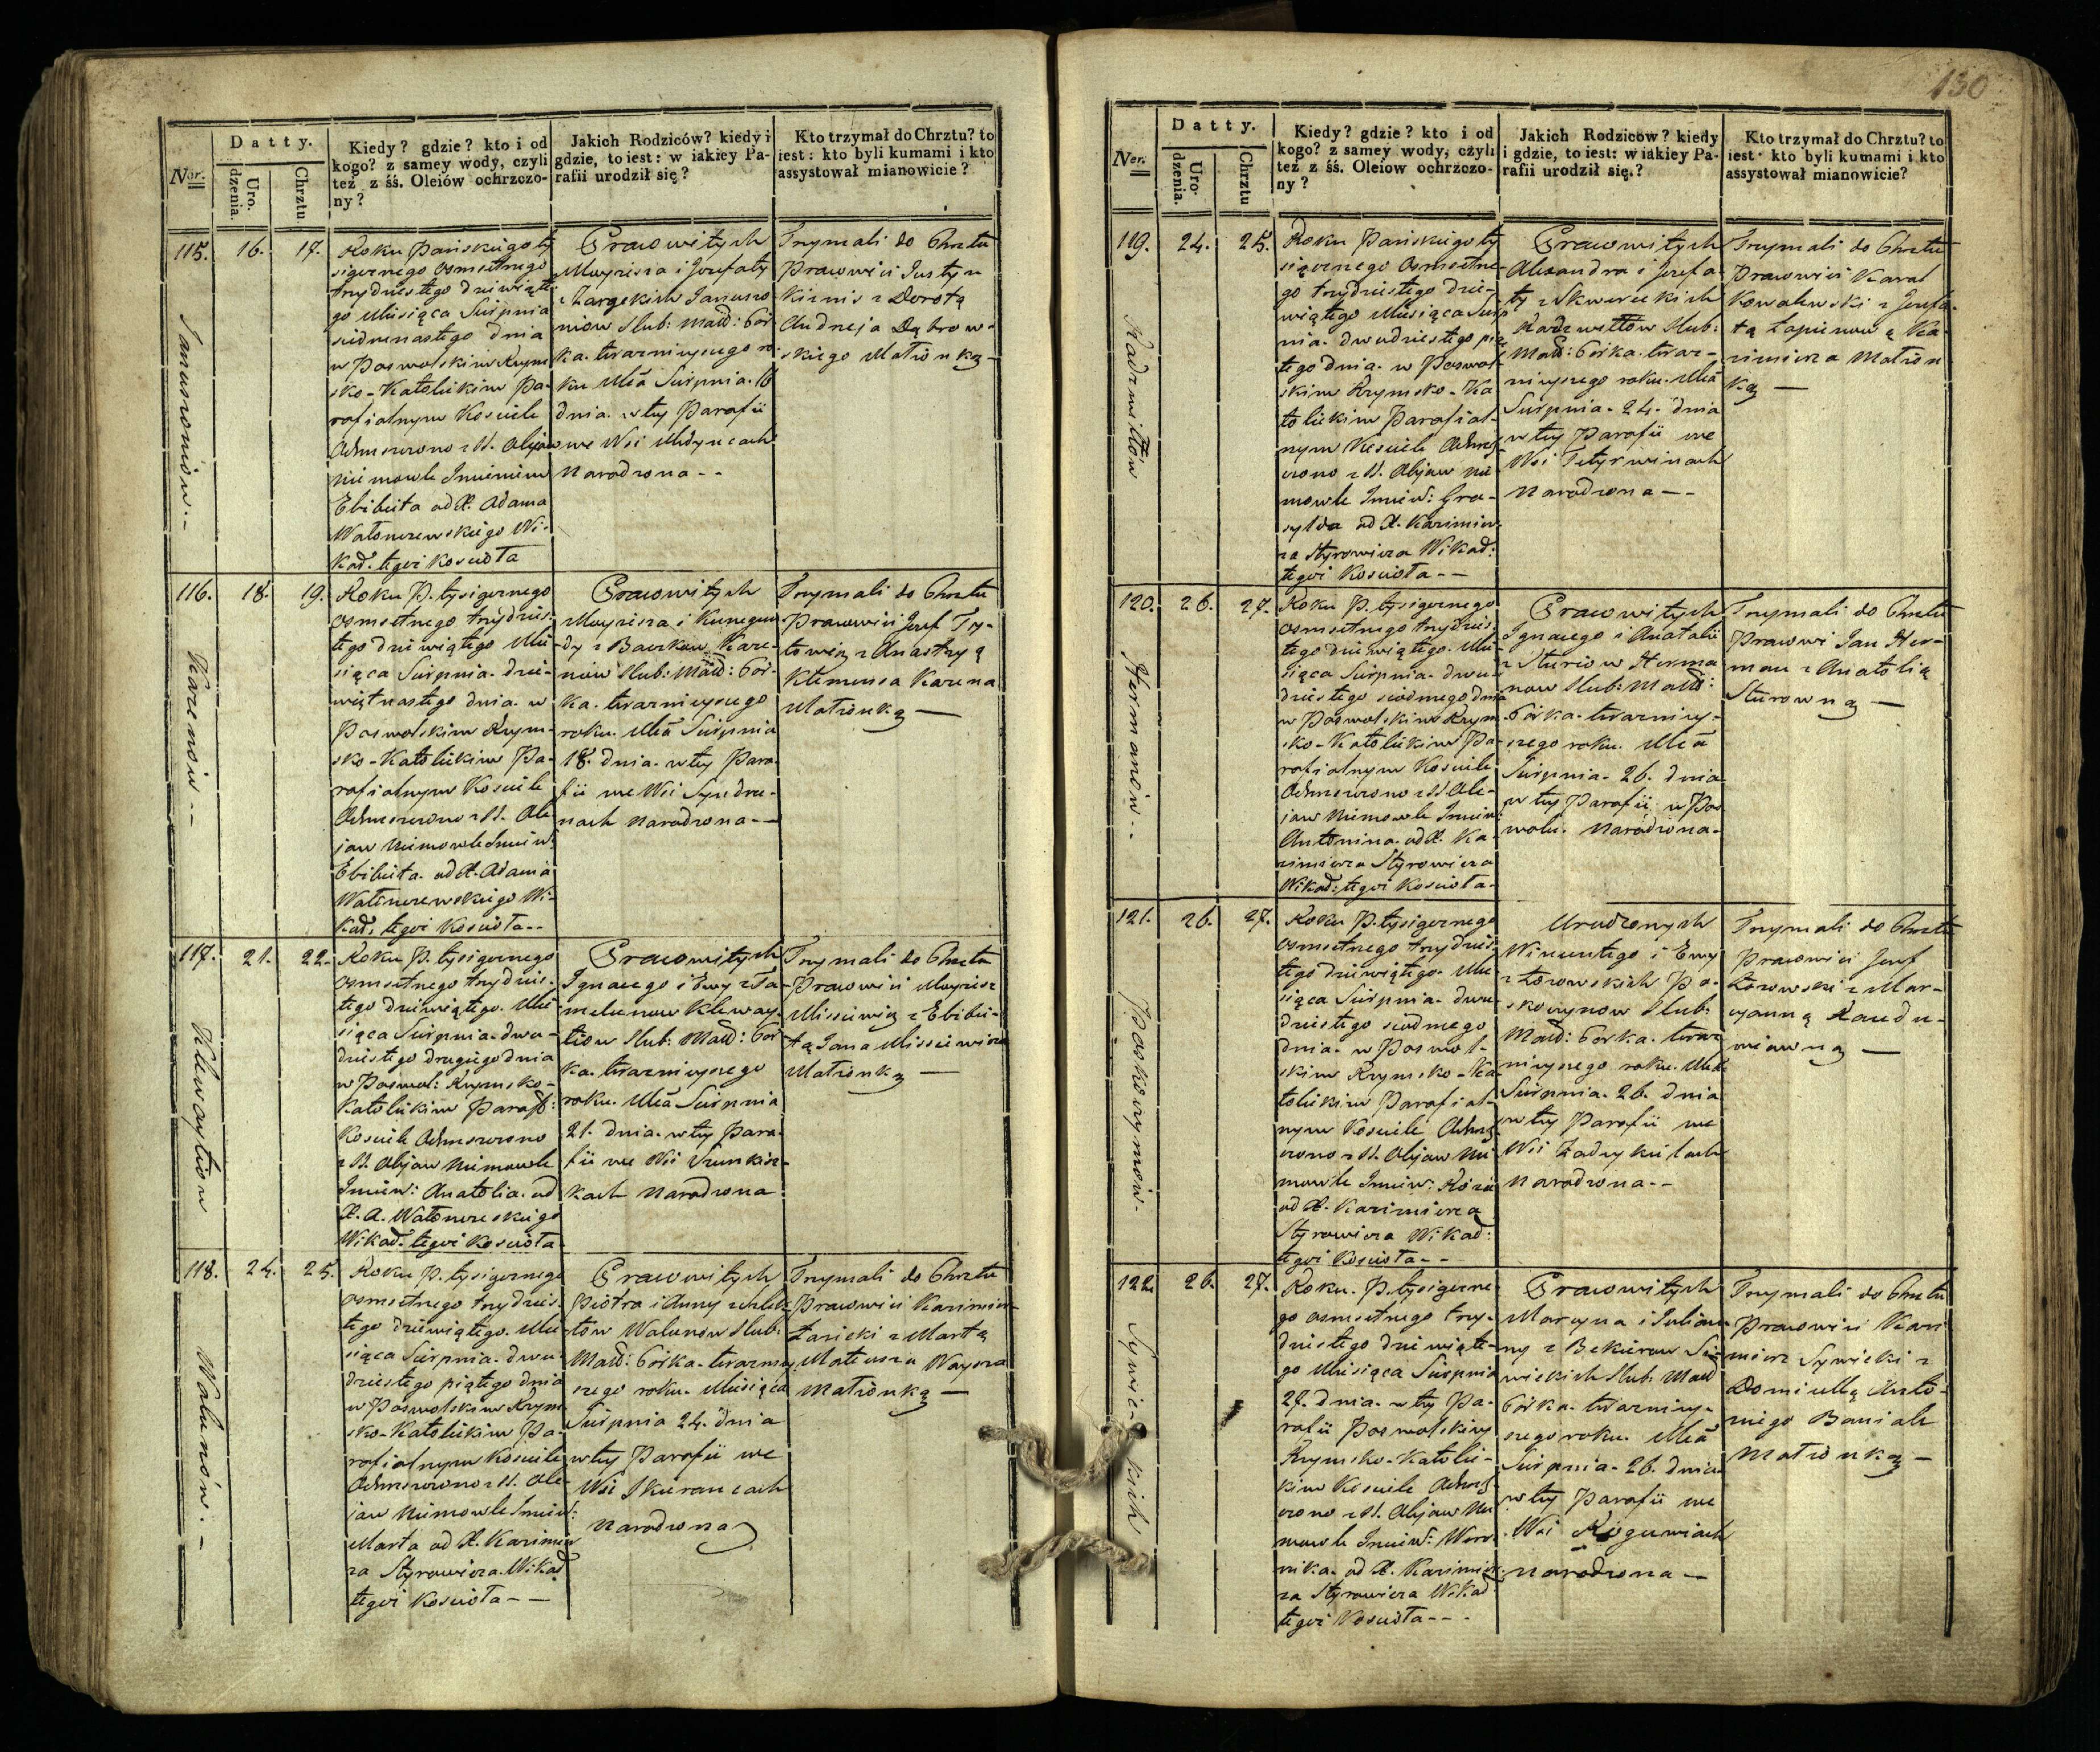 130
Ner.
Datty.
Uro-
dzenia.
Chrztu
Kiedy? gdzie? kto i od
kogo? z samey wody, czyli
też z śś. Oleiów ochrzczo-
ny?
Jakich Rodziców? kiedy i
gdzie, to iest: w iakiey Pa-
rafii urodził się?
Kto trzymał do Chrztu? to
iest: kto byli kumami i kto
assystował mianowicie?
115.
Januszoniów.-
16.
17.
Roku Pańskiego ty
siącznego osmsetnego
trzydziestego dziewiąte-
go Miesiąca Sierpnia
siedmnastego dnia
w Poswolskim Rzym
sko-Katolickim Pa-
rafialnym Kosciele
Ochrzczono z SS. Olejow
niemowle Imieniem
Elżbieta od X. Adama
Wikad. tegoż Kościoła
Pracowitych
Mayciera i Jozefaty
Januszo
niów Slub: Małż: Cór
ka. teraznieyszego ro
ku Mca Sierpnia. 16
dnia. w tey Parafii
we Wsi
Narodzona--
Trzymali do Chrztu
Pracowici Justyn
z Dorotą
Andrzeja Dąbrow-
skiego Małżonką-
116.
Karenów--
18.
19.
Roku P. tysiącznego
osmsetnego trzydzies-
tego dziewiątego Mie
siąca Sierpnia. dzie-
więtnastego dnia. w
Poswolskim Rzym-
sko-Katolickim Pa-
rafialnym Kosciele
Ochrzczono z SS. Ole
jow Niemowle Imien:
Elżbieta. od X. Adama
Wi-
kad. tegoż Kościoła--
Pracowitych
Mayciera i Kunegun
dy z Kare-
nów Slub: Małż: Cór-
ka. teraznieyszego
roku. Mca Sierpnia
18. dnia. w tey Para-
fii we Wsi
nach Narodzona--
Trzymali do Chrztu
Pracowici Jozef
z Anastazyą
Klemensa Karena
Małżonką-
117.
Klewaytiow
21.
22.
Roku P. tysiącznego
osmsetnego trzydzies-
tego dziewiątego. Mie
siąca Sierpnia. dwu-
dziestego drugiego dnia
w Poswol: Rzymsko-
Katolickim Paraf:
Kosciele Ochrzczono
z SS. Olejow Niemowle
Imien: Anatolia. od
X. A.
Wikad. tegoż Kościoła
Pracowitych
Ignacego i Ewy z Ta-
melunow Kleway-
tiow Slub: Małż: Cór
ka. teraznieyszego
roku. Mca Sierpnia
21. dnia. w tey Para-
fii we Wsi
kach Narodzona
Trzymali do Chrztu
Pracowici Maycier
Missiewicz z Elżbie-
tą Jana Missiewicza
Małżonką-
118.
Walunów.-
24.
25.
Roku P. tysiącznego
osmsetnego trzydzies-
tego dziewiątego. Mie
siąca Sierpnia. dwu-
dziestego piątego dnia
w Poswolskim Rzym
sko-Katolickim Pa-
rafialnym Kosciele
Ochrzczono z SS. Ole-
jow Niemowle Imien:
Marta od X. Kazimie
rza Styrowicza. Wikad
tegoż Kościoła--
Pracowitych
Piotra i Anny
Walunów Slub:
Małż: Córka. terazniey
szego roku. Miesiąca
Sierpnia 24. dnia
w tey Parafii we
Wsi Skierancach
Narodzona
Trzymali do Chrztu
Pracowici Kazimierz
z Martą
Mateusza
Małżonką-
Ner.
Datty.
Uro-
dzenia.
Chrztu
Kiedy? gdzie? kto i od
kogo? z samey wody, czyli
też z śś. Oleiow ochrzczo-
ny?
Jakich Rodzicow? kiedy
i gdzie, to iest: w iakiey Pa-
rafii urodził się?
Kto trzymał do Chrztu? to
iest: kto byli kumami i kto
assystował mianowicie?
119.
Radzwiłłów
24.
25.
Roku Pańskiego ty
siącznego osmsetne-
go trzydziestego dzie-
wiątego Miesiąca Sierp
nia. dwudziestego pią
tego dnia. w Poswol-
skim Rzymsko-Ka
tolickim Parafial-
nym Kosciele Ochrz-
czono z SS. Olejow nie-
mowle Imień: Gra-
sylda od X. Kazimier-
za Styrowicza Wikad:
tegoż Kościoła--
Pracowitych
Alexandra i Jozefa-
ty z Skwereckich
Radzwiłłów Slub:
Małż: Córka. teraz-
nieyszego roku. Mca
Sierpnia. 24. dnia
w tey Parafii we
Wsi Tetyrwinach
Narodzona--
Trzymali do Chrztu
Pracowici Karol
Kowalewski z Jozefa-
tą Łapienową Ka-
zimierza Małżon
ką-
120.
Hermanów--
26.
27.
Roku P. tysiącznego
osmsetnego trzydzies-
tego dziewiątego. Mie
siąca Sierpnia. dwu-
dziestego siodmego dnia
w Poswolskim Rzym-
sko-Katolickim Pa-
rafialnym Kosciele
Ochrzczono z SS. Ole-
jow Niemowle Imien
Antonina. od X. Ka-
zimierza Styrowicza
Wikad: tegoż Kościoła-
Pracowitych
Ignacego i Anatolii
z Sturiow Herma
now Slub: Małż:
Córka. terazniey-
szego roku. Mca
Sierpnia. 26. dnia
w tey Parafii w Pos
wolu. Narodzona-
Trzymali do Chrztu
Pracowi Jan Her-
man z Anatolią
Sturowną-
121.
Paskoczymów-
26.
27.
Roku P. tysiącznego
osmsetnego trzydzies
tego dziewiątego. Mie
siąca Sierpnia. dwu-
dziestego siodmego
dnia. w Poswol-
skim Rzymsko-Ka
tolickim Parafial-
nym Kosciele Ochrz
czono z SS. Olejow Nie
mowle Imien. Róża
od X. Kazimierza
Styrowicza Wikad:
tegoż Kościoła--
Urodzonych
Wincentego i Ewy
z Pa-
Slub:
Małż: Córka. teraz
nieyszego roku. Mca
Sierpnia. 26. dnia
w tey Parafii we
Wsi
Narodzona--
Trzymali do Chrztu
Pracowici Jozef
z Mar-
cyanną
-
122.
Sywic-kich
26.
27.
Roku. P. tysiączne-
go osmsetnego trzy-
dziestego dziewiąte-
go Miesiąca Sierpnia
27. dnia. w tey Pa-
rafii Poswolskiey
Rzymsko-Katolic-
kim Kosciele Ochrz-
czono z SS. Olejow Nie
mowle Imien: Wero-
nika. od X. Kazimier-
za Styrowicza Wikad
tegoż Kościoła--
Pracowitych
Marcyna i Julian-
ny z Bekierow Sy-
wickich Slub. Małż
Córka. terazniey-
szego roku. Mca
Sierpnia. 26. dnia
w tey Parafii we
Wsi
Narodzona-
Trzymali do Chrztu
Pracowici Kazi
mierz Sywicki z
Domicellą Anto-
niego
Małżonką-